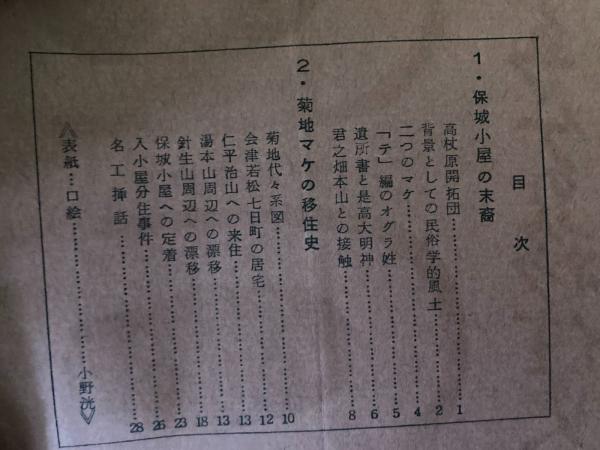 目次
1・保城小屋の末裔
高杖原開拓団……1
背景としての民俗学的風土……2
二つのマケ……4
「テ」編のオグラ姓……5
遺所書と是高大明神……6
君之畑本山との接触……8
2・菊地マケの移住史
菊地代々系図……10
会津若松七日町の居宅……12
仁平治山への来住……13
湯本山周辺への漂移……13
針生山周辺への漂移……18
保城小屋への定着……23
入小屋分住事件……26
名工挿話……28
〈表紙…口絵……小野洸〉